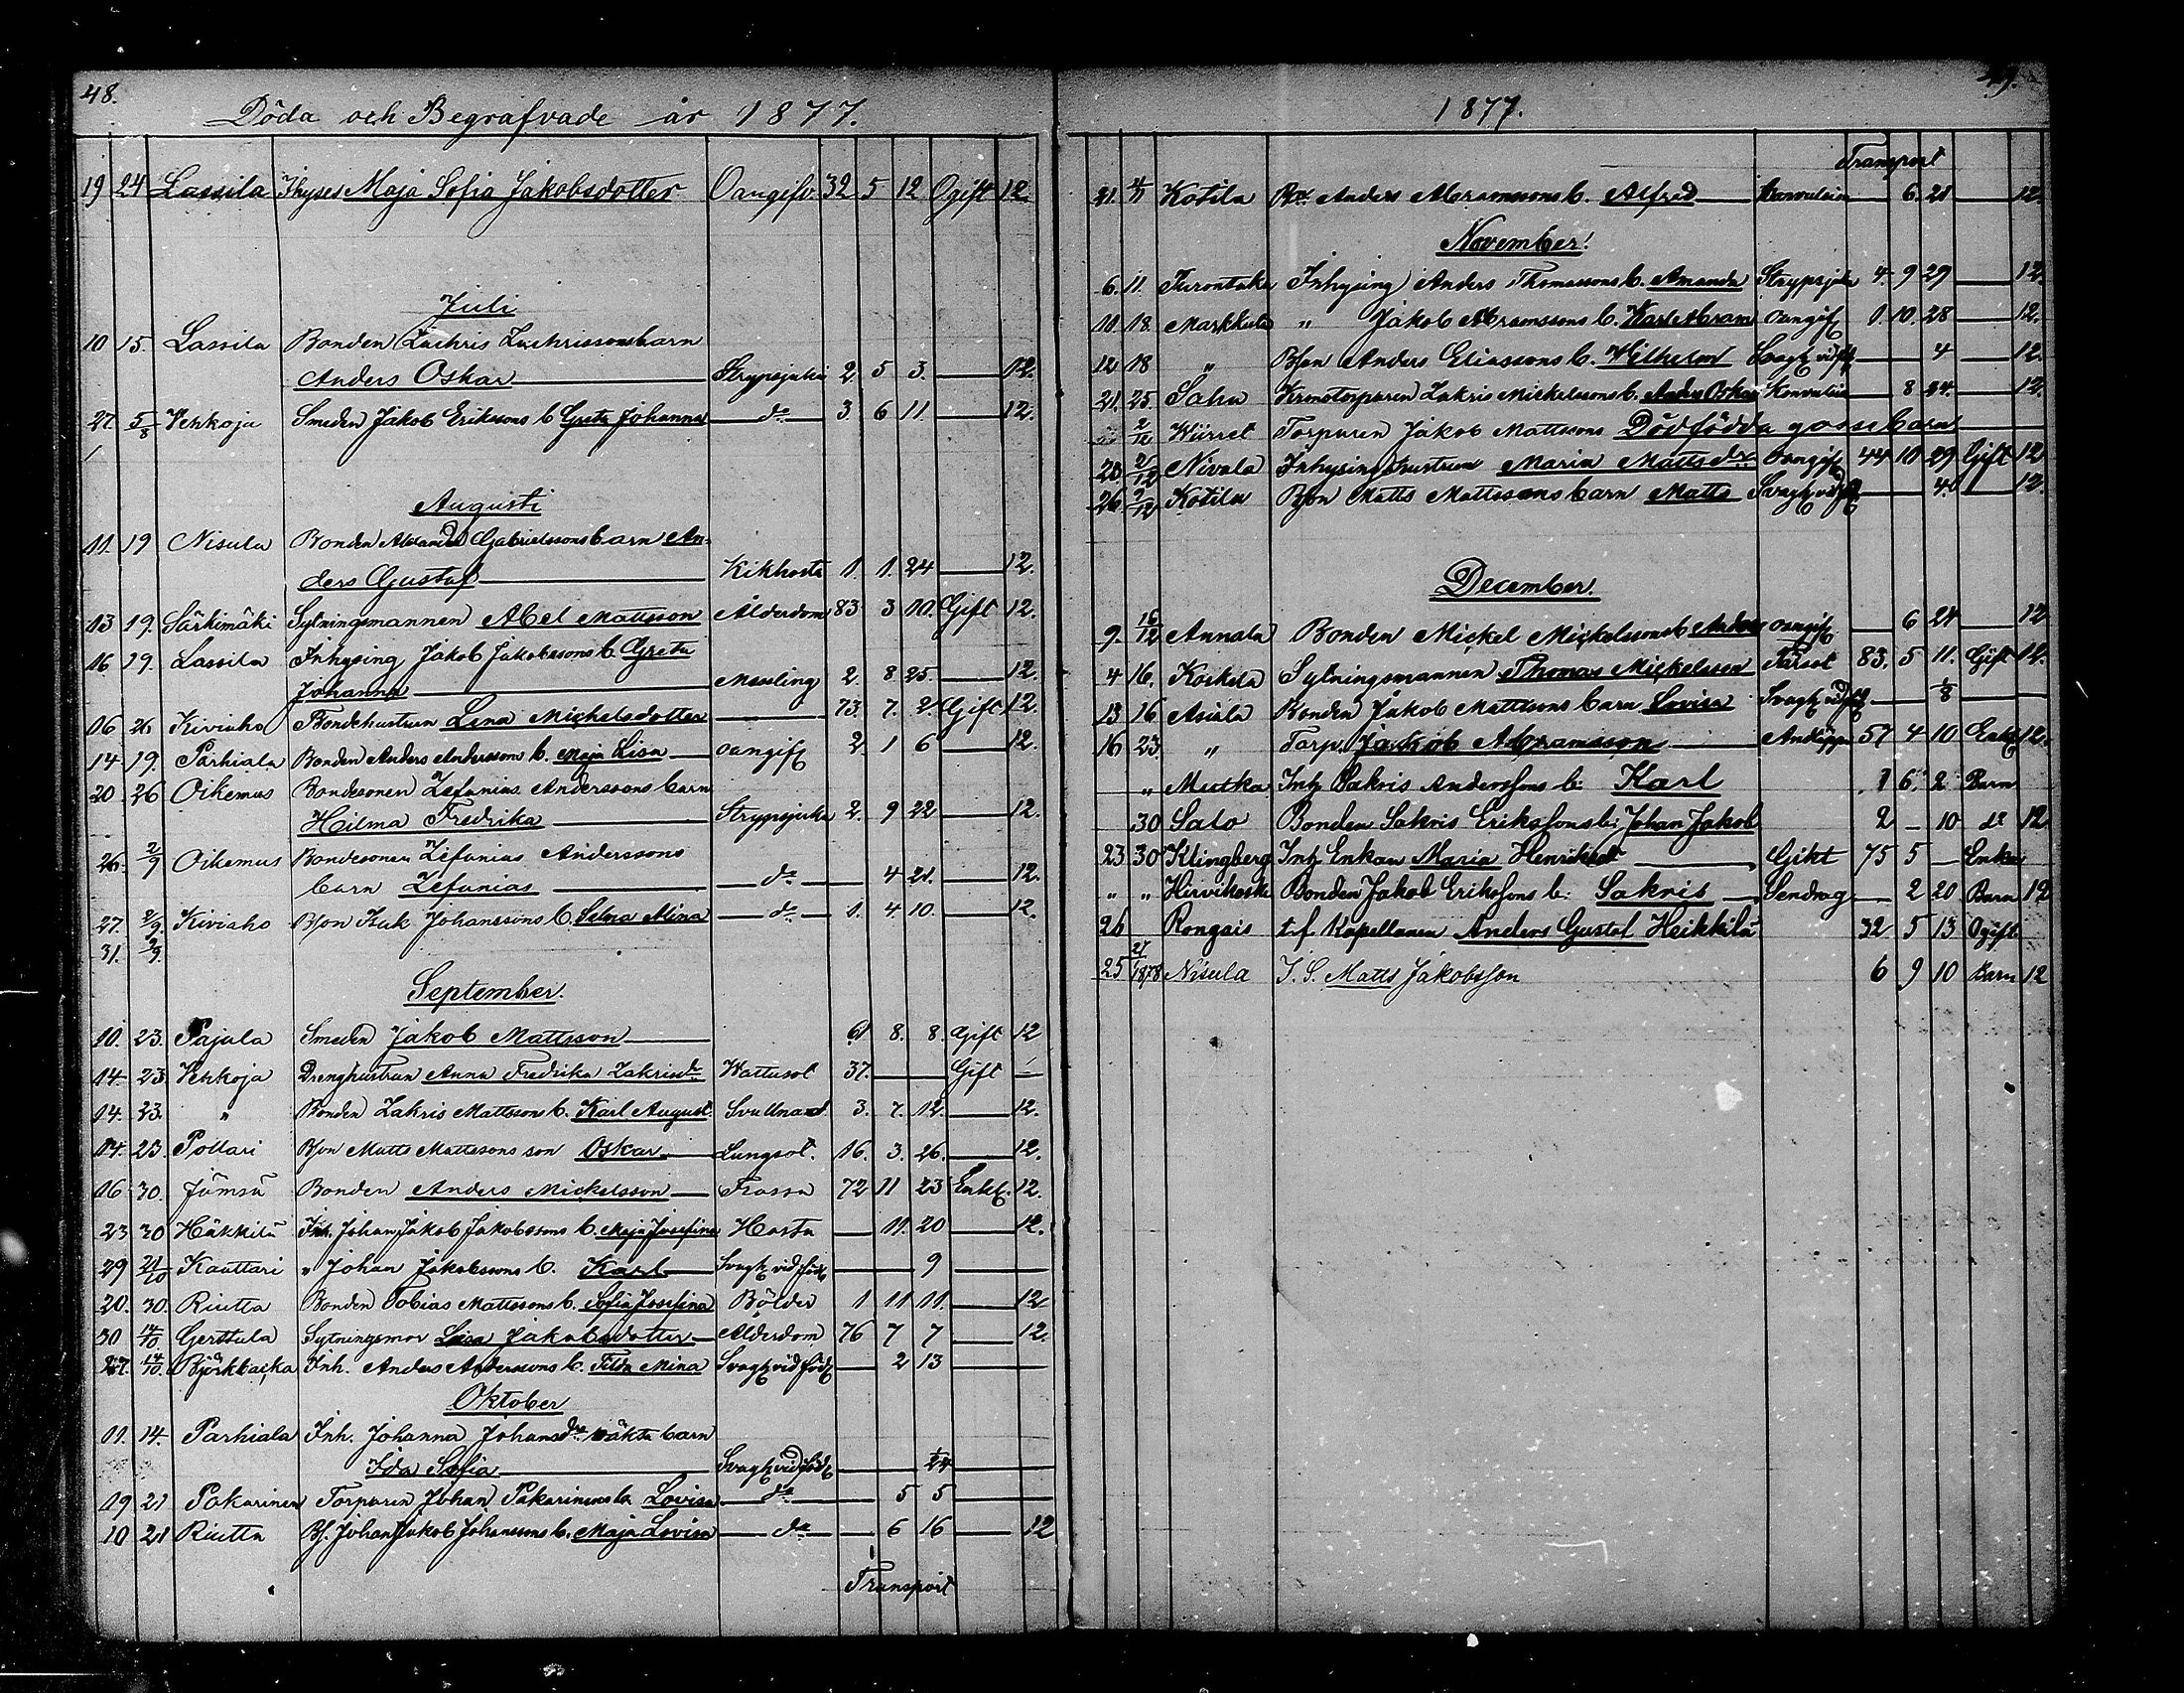 48.
Döda och Begrafvade år 1877.
19 24 Lassila Ihyses Maja Sofia Jakobsdotter Oangifv. 32 5 12 Ogift 12.
Juli
10 15. Lassila Bonden Zachris Zachrissons barn
Anders Oskar Strypsjuka 2 5 3. 12.
27. 5/8 Vehkoja Smeden Jakob Erikssons b Greta Johanna do 3 6 11 12.
Augusti
11. 19 Nisula Bonden Alexander Gabrielssons barn An-
ders Gustaf Kikhosta 1. 1. 24 12.
13 19. Särkimäki Sytningsmannen Abel Mattsson Ålderdom 83 3 11. Gift 12.
16 19. Lassila Inhysing Jakob Jakobssons b. Greta
Johanna Messling 2. 8 25. 12.
16 26 Kiviaho Bondehustrun Lena Michelsdotter 73. 7. 2. Gift 12.
14 19. Parhiala Bonden Anders Anderssons b. Maja Lisa oangif 2 1 6 12.
20 26 Oikemus Bondesonen Zefanias Anderssons barn
Hilma Fredrika Strypsjuka 2. 9 22 12.
26. 2/9 Oikemus Bondesonen Zefanias Anderssons
barn Zefanias do 4 21. 12.
27. 2/9. Kiviaho Bson Isak Johanssons b. Selma Mina do 1. 4 10. 12.
31. 2/9.
September.
10. 23. Pajala Smeden Jakob Mattsson 61 8. 8. Gift 12
14. 23 Vehkoja Drenghustrun Anna Fredrika Zakrisdr Wattusot 37. Gift
14. 23. " Bonden Zakris Mattsson b. Karl August. Svullnad. 3. 7. 12. 12.
14. 23. Pollari Bson Matts Mattssons son Oskar Lungsot. 16. 3. 26. 12.
16 30. Jämsä Bonden Anders Mickelsson Frossa 72 11 23 Enkl. 12.
23 30 Häkkilä Inh. Johan Jakob Jakobssons b. Maja Josefina Hosta 11. 20 12.
29 21/10 Kauttari " Johan Jakobssons b. Karl Svagh vid föd 9
20. 30. Riutta Bonden Tobias Mattssons b. Sofia Josefina Bölder 1 11 11. 12
30 14/10 Gerttula Sytningsmor Lisa Jakobsdotter Ålderdom 76 7 7 12.
27. 14/10. Björkbacka Inh. Anders Anderssons b. Filda Mina Svagh vid föd 2 13
Oktober
11. 14. Parhiala Inh. Johanna Johansdr oäkta barn
Ida Sofia Svagh vid föd 1/24
19 21 Pakarinen Torparen Johan Pakarinens b. Lovisa do 5 5
10 21 Riutta Bs. Johan Jakob Johanssons b. Maja Lovisa do 6 16 12
Transport
49.
1877.
Transport
21. 4/11 Kotila Anders Abramssons b. Alfred Konvulsion 6. 21 12.
November.
6. 11. Turontaka Inhysing Anders Thomassons b. Amanda Strypsjuka 4. 9 29 12.
10. 18. Markkula " Jakob Abramssons b. Karl Abram oangif 1. 10. 28 12.
12 18 " Bson Anders Eliassons b. Wilhelm Svagh vid föd 4 12.
21. 25. Salu Kronotorparen Zakris Mickelssons b. Anders Oskar Konvulsion 8 24. 12.
2/12 Wirret Torparen Jakob Mattssons Dödfödda gossebarn
20 2/12 Nivala Inhysingshustrun Maria Mattsdr. Oangif 44 10 29 Gift 12
26. 9/12 Kotila Bson Matts Mattssons barn Matts Svagh vid föd 4. 12.
December.
9. 16/12 Annala Bonden Mickel Mickelssons b Anders oangif 6 24 12
4 16. Koskela Sytningsmannen Thomas Mickelsson 83. 5 11. Gift 12.
13 16 Asiala Bonden Jakob Mattssons barn Lovisa Svagh vid föd 1/8
16 23. " Torp. Jakob Abramsson Andtäppa 57 4 10 Enkl 12.
" Mutka Inh Sakris Anderssons b: Karl 1 6 2 Barn
30 Salo Bonden Sakris Erikssons b: Johan Jakob 2 – 10 do 12
23 30 Klingberg Inh Enkan Maria Henriksdr Gikt 75 5 Enka
" " Hirvikoski Bonden Jakob Erikssons b: Sakris Sendrag 2 20 Barn 12
26 Rongais t.f. Kapellanen Anders Gustaf Heikkilä 32 5 13 Ogift
25 27/1 1878 Nisula I. S. Matts Jakobsson 6 9 10 Barn 12